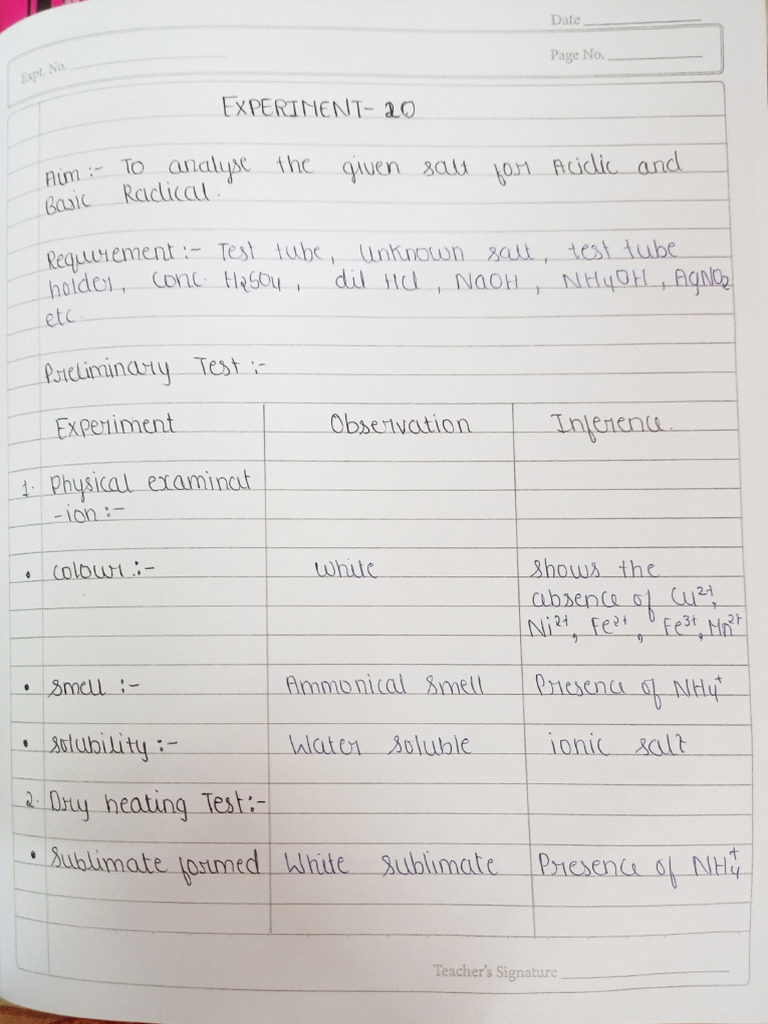 Date
Expt. No.
Page No.
EXPERIMENT- 20
Aim :- To analyse the given salt for Acidic and
Basic Radical.
Requirement :- Test tube, Unknown salt, test tube
holder, conc. H₂SO₄, dil HCl, NaOH, NH₄OH, AgNO₂
etc.
Preliminary Test :-
Experiment Observation Inference.
1. Physical examinat
-ion :-
• colour :- White shows the
absence of Cu²⁺,
Ni²⁺, Fe²⁺, Fe³⁺, Mn²⁺
• smell :- Ammonical smell Presence of NH₄⁺
• solubility :- Water soluble ionic salt
2. Dry heating Test:-
• sublimate formed White sublimate Presence of NH₄⁺
Teacher's Signature